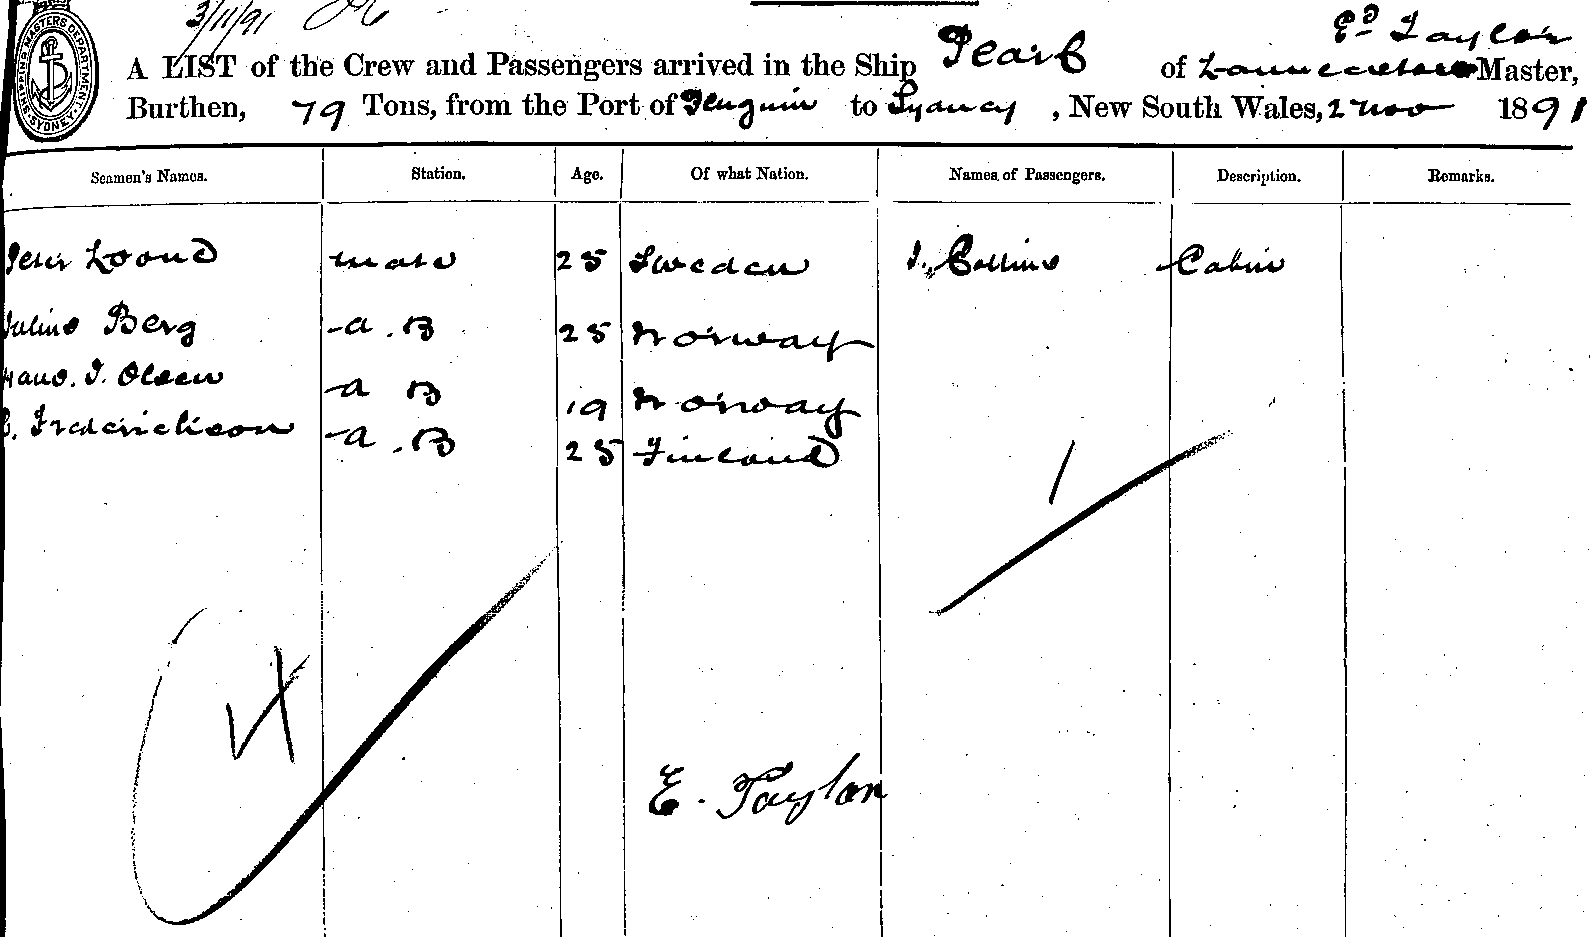 3/11/91
SHIPPING MASTERS DEPARTMENT SYDNEY
Ed Taylor
A LIST of the Crew and Passengers arrived in the Ship Pearl of Launceston Master,
Burthen, 79 Tons, from the Port of Penguin to Sydney, New South Wales, 2 Nov 1891
Seamen's Names. Station. Age. Of what Nation. Names of Passengers. Description. Remarks.
Peter Loond mate 25 Sweden J. Collins Cabin
Julius Berg A.B 25 Norway
Hans. J. Olsen A B 19 Norway
C. Frederickson A.B 25 Finland
1
4
E. Taylor